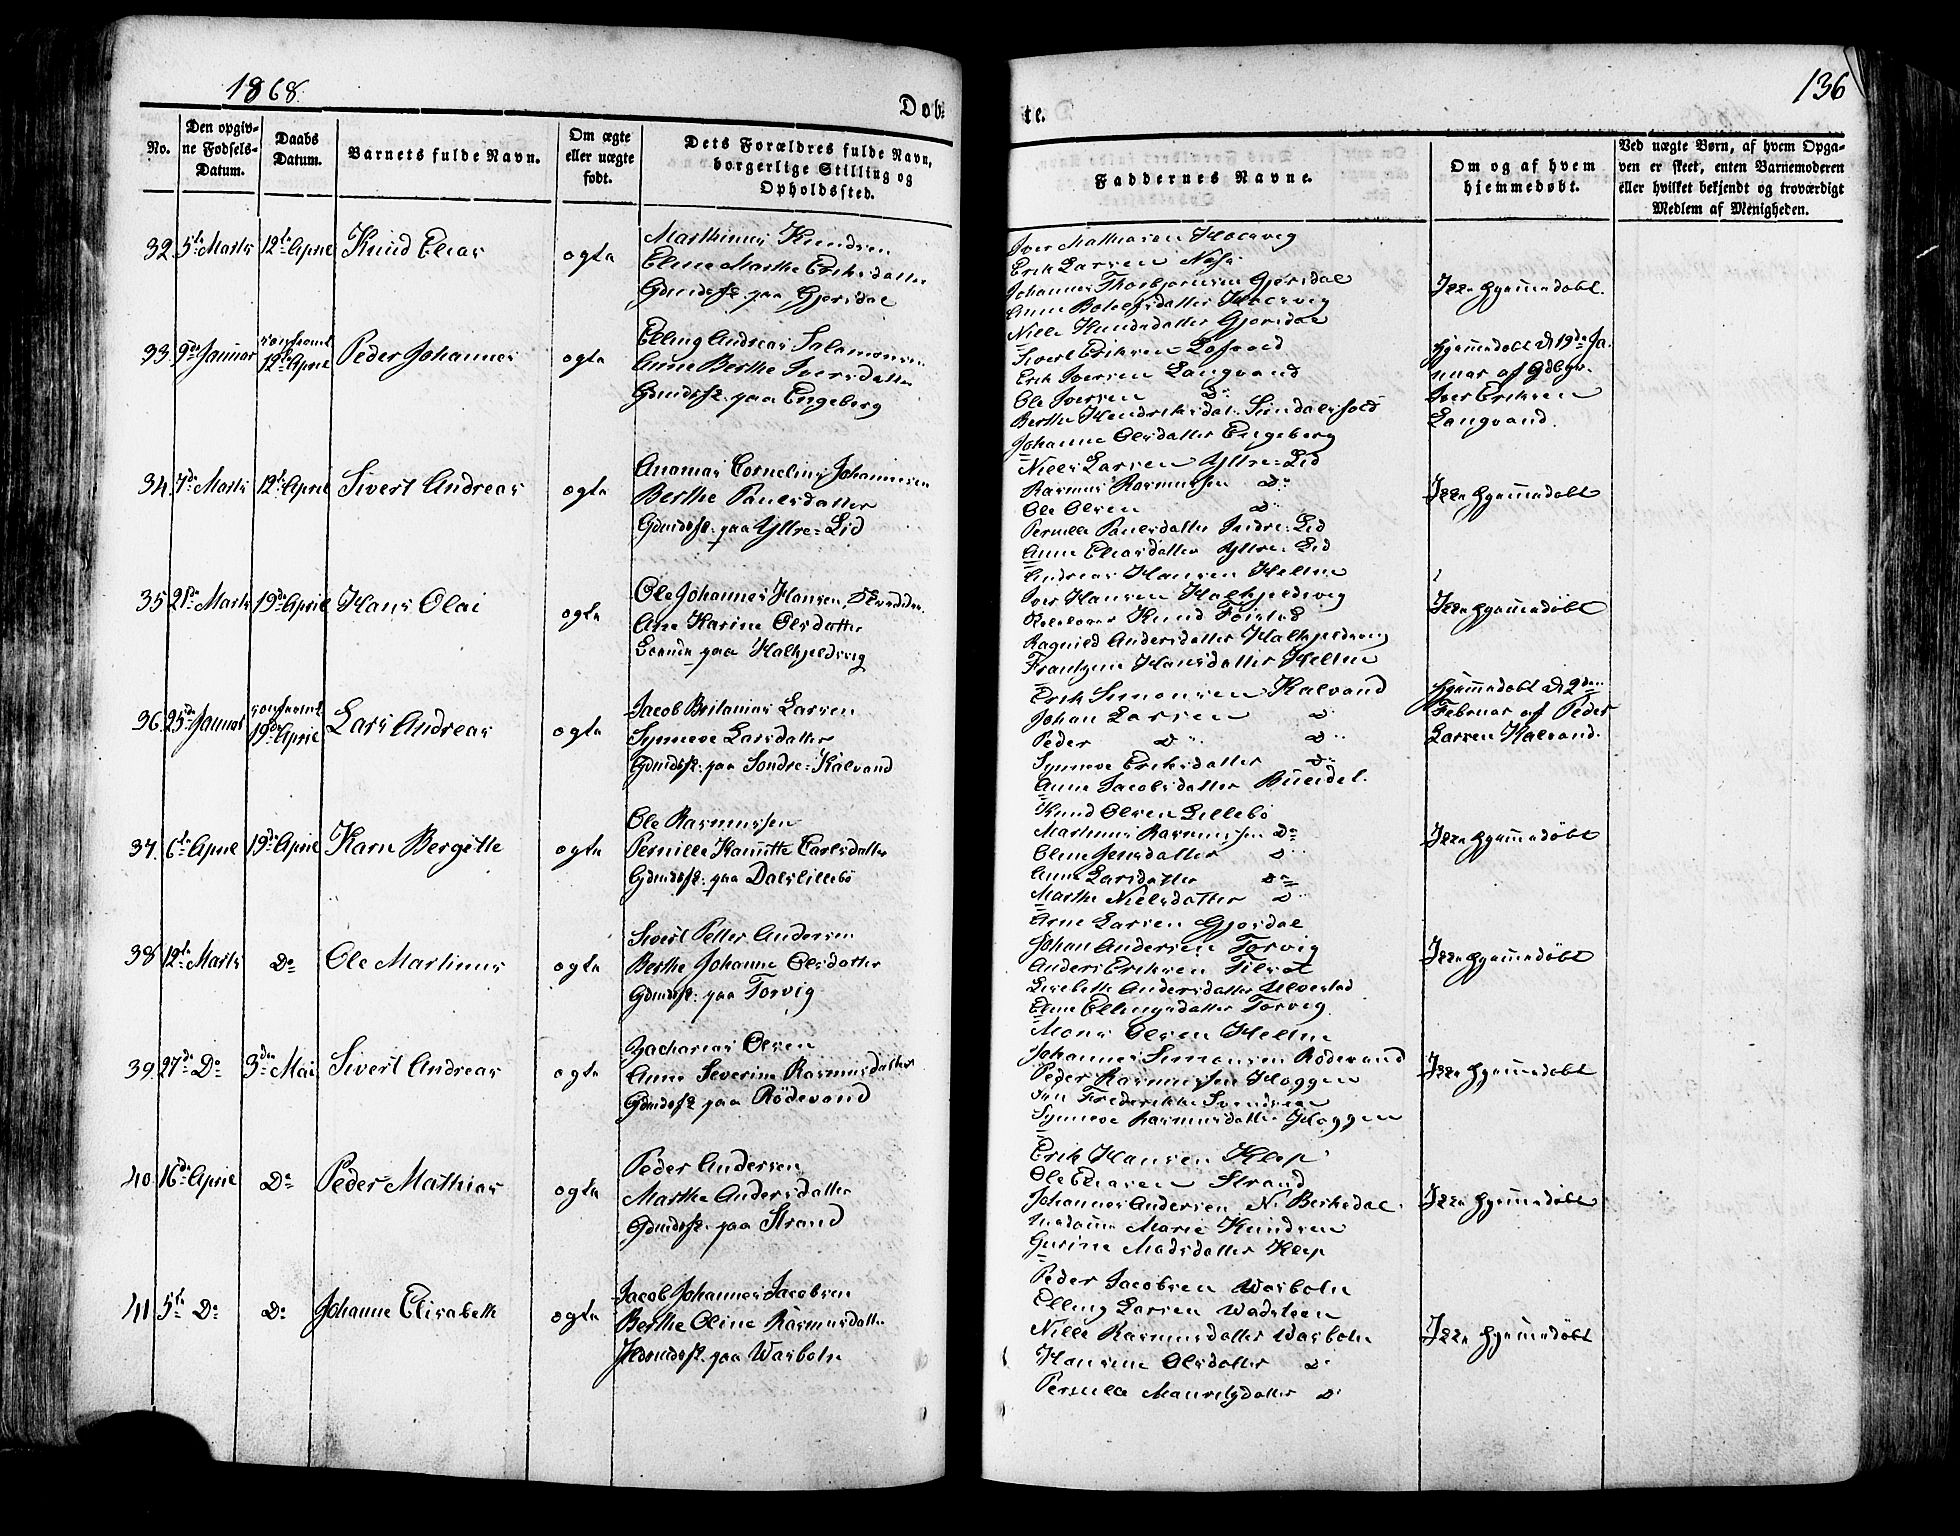 1868.
136
Døb-
te.
No.
Den opgiv-
ne Fødsels-
Datum.
Daabs
Datum.
Barnets fulde Navn.
Om ægte
eller uægte
født.
Dets Forældres fulde Navn,
borgerlige Stilling og
Opholdssted.
Faddernes Navne.
Om og af hvem
hjemmedøbt.
Ved uægte Børn, af hvem Opga-
ven er skeet, enten Barnemoderen
eller hvilket bekjendt og troværdigt
Medlem af Menigheden.
32. 5te Marts 12te April Knud Elias ægte
Marthinus Knudsen
Eline Marthe Eriksdatter
Gbrudsfk. paa Gjørsdal
Iver Mathiasen
Erik Larsen
Johannes Thorbjørnsen Gjørsdal
Anne
Nille Knudsdatter Gjørsdal
Ikke hjemmedøbt.
33. 9de Januar confirmt 12te April Peder Johannes ægte
Elling Andreas Salamonsen
Anne Berthe Iversdatter
Gbrudsfk. paa Engeberg
Sivert Eriksen
Erik Iversen Langvand
Ole Iversen Do
Berthe Hendriksdat.
Johanne Olsdatter Engeberg
hjemmedøbt d 19de Ja-
nuar af Gdbgr.
Iver Eriksen
Langvand.
34. 7de Marts 12te April Sivert Andreas ægte
Ananias Cornelius Johannesen
Berthe Paulsdatter
Gbrudsfk. paa Yttre-Lid
Niels Larsen Yttre-Lid
Rasmus Rasmussen Do
Ole Olsen Do
Pernille Paulsdatter Indre-Lid
Anne Eliasdatter Yttre-Lid
Ikke hjemmedøbt
35 21de Marts 19de April Hans Olai ægte
Ole Johannes Hansen,
Ane Karine Olsdatter
paa Halkjeldsvig
Andreas Hansen Helme
Iver Hansen Halkjeldsvig
Knud
Ragnild Andersdatter Halkjeldsvig
Frantzine Hansdatter Helme
Ikke hjemmedøbt
36 25de Januar confirmt 19de April Lars Andreas ægte
Jacob Britanius Larsen
Synneve Larsdatter
Gbrudsfk. paa Søndre-Kalvand
Erik Simonsen Kalvand
Johan Larsen Do
Peder Do Do
Synneve Eriksdatter Do
Anne Jacobsdatter
hjemmedøbt d 2den
Februar af Peder
Larsen Kalvand.
37. 6te April 19de April Karn Bergitte ægte
Ole Rasmussen
Pernille Karnitte Carlsdatter
Gbrudsfk. paa Dalslillebø
Knud Olsen Lillebø
Martinus Rasmussen Do
Oline Jensdatter Do
Anne Larsdatter Do
Marthe Nielsdatter Do
Ikke hjemmedøbt
38 12te Marts Do Ole Martinus ægte
Sivert Petter Andersen
Berthe Johanne Olsdatter
Gbrudsfk. paa Torvig
Arne Larsen Gjørdal
Johan Andersen Torvig
Anders Eriksen
Lisebeth Andersdatter Ulvestad
Eline Ellingsdatter Torvig
Ikke hjemmedøbt
39. 27de Do 3die Mai Sivert Andreas ægte
Zacharias Olsen
Anne Severine Rasmusdatter
Gbrudsfk. paa Rødevand
Mons Olsen Helme
Johannes Simonsen Rødevand
Peder Rasmussen Haggen
Frederikke Svendsen
Synneve Rasmusdatter Haggen
Ikke hjemmedøbt
40. 16de April Do Peder Mathias ægte
Peder Andersen
Marthe Andersdatter
Gbrudsfk. paa Strand
Erik Hansen Klep
Ole Eliasen Strand
Johannes Andersen N. Birkedal
Madame Marie Knudsen
Gurine Madsdatter Klep
Ikke hjemmedøbt
41 5te Do Do Johanne Elisabeth ægte
Jacob Johannes Jacobsen
Berthe Oline Rasmusdatter
paa Wasbotn
Peder Jacobsen Wasbotn
Elling Larsen Wadsteen
Nille Rasmusdatter Wasbotn
Hansine Olsdatter Do
Pernille Do
Ikke hjemmedøbt